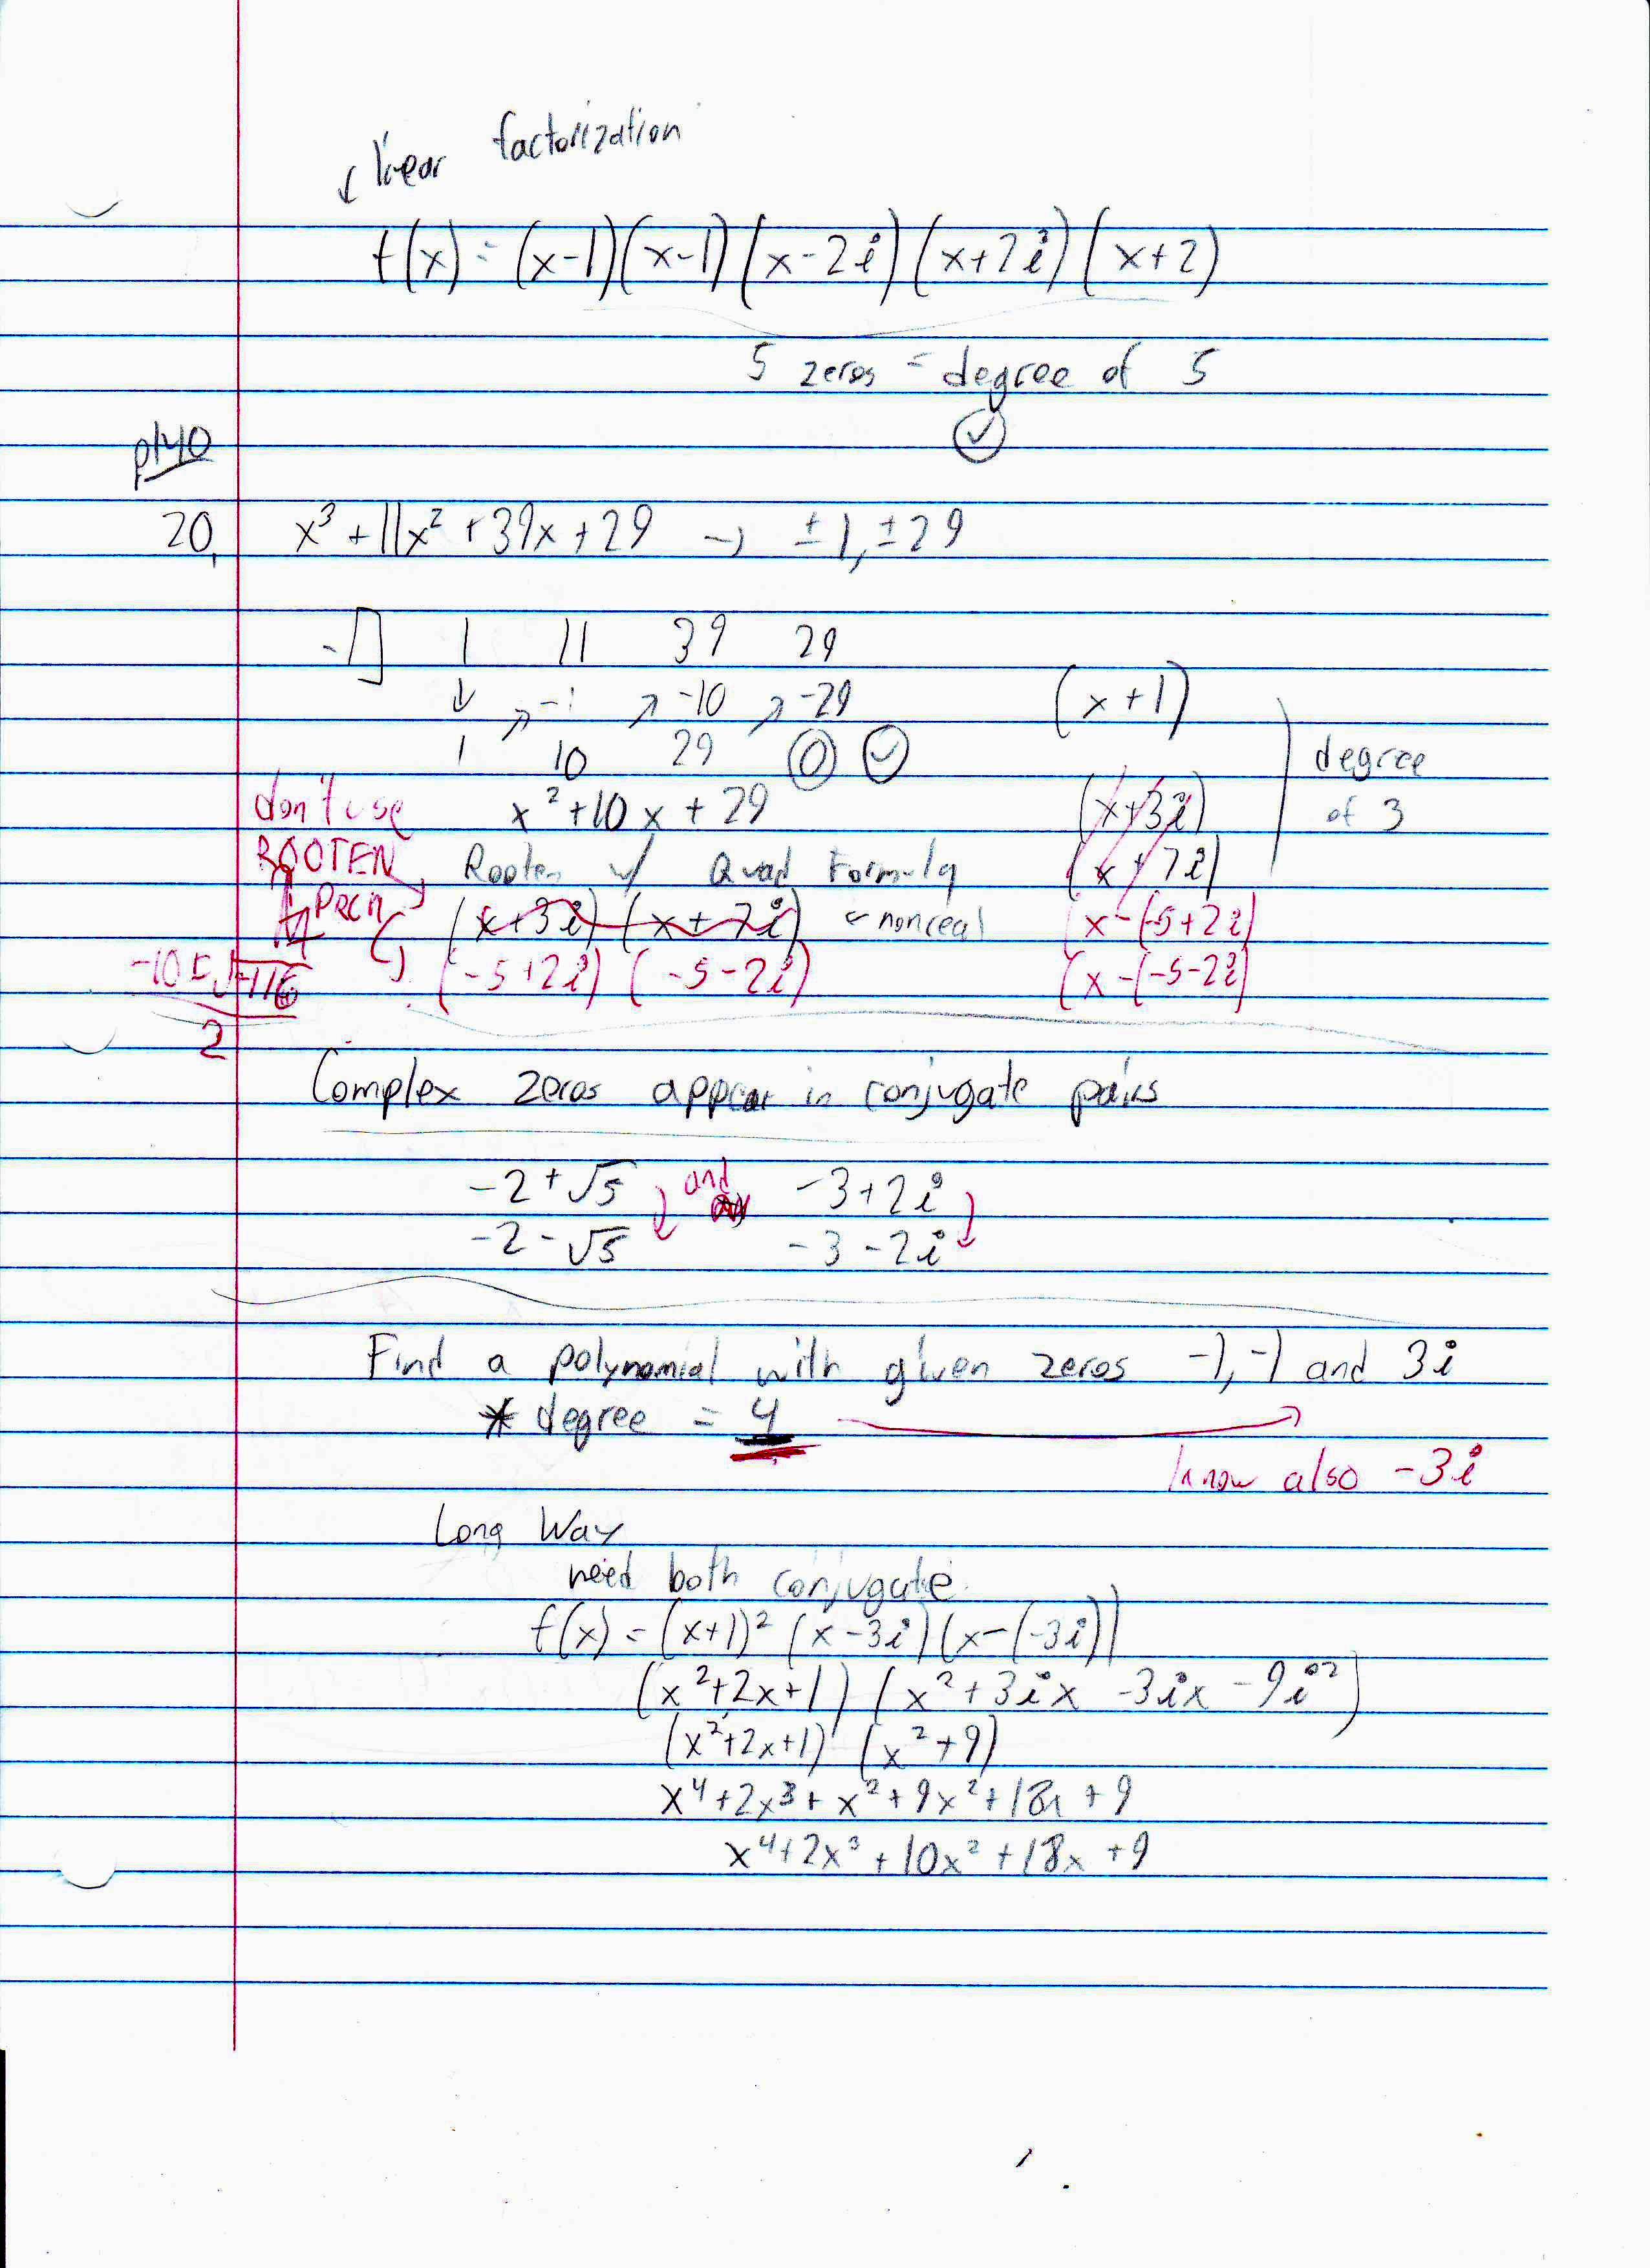 linear factorization
f(x) = (x-1)(x-1)(x-2i)(x+2i)(x+2)
5 zeros = degree of 5
p140
20, x³ + 11x² + 39x + 29 → ±1, ±29
-1 1 11 39 29
↓ ↗ -1 ↗ -10 ↗ -29 (x+1)
1 10 29 0 ✓ degree
don't use x² + 10x + 29 (x+3i) of 3
ROOTEN Rooten w/ Quad Formula (x+7i)
PRGM (x+3i)(x+7i) ← nonreal (x-(-5+2i)
-10±√-116 (-5+2i) (-5-2i) (x-(-5-2i)
2
Complex zeros appear in conjugate pairs
-2+√5 and -3+2i
-2-√5 -3-2i
Find a polynomial with given zeros -1, -1 and 3i
* degree = 4
know also -3i
Long Way
need both conjugate
f(x) = (x+1)² (x-3i)(x-(-3i))
(x²+2x+1) (x²+3ix -3ix -9i²)
(x²+2x+1) (x²+9)
x⁴+2x³+x²+9x²+18x+9
x⁴+2x³+10x²+18x+9